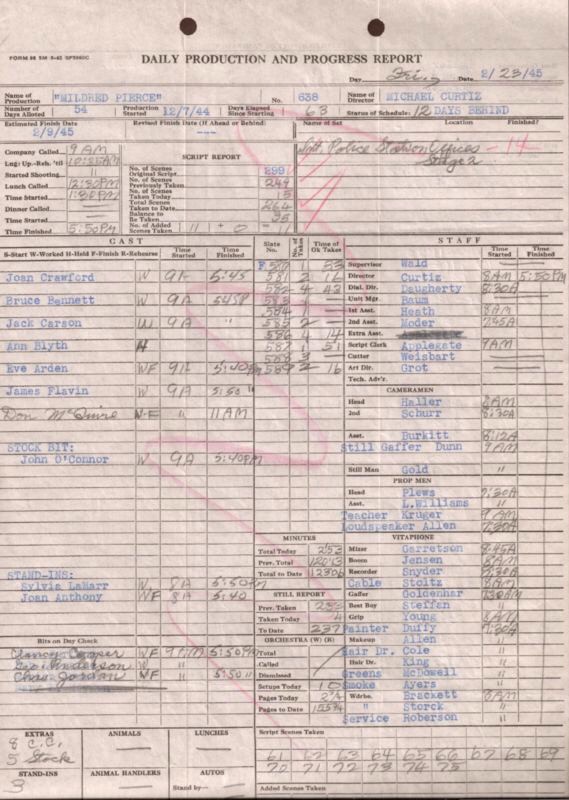 FORM 88 5M 5-42
DAILY PRODUCTION AND PROGRESS REPORT
Day Date 2/23/45
Name of Production "MILDRED PIERCE" No. 638 Name of Director MICHAEL CURTIZ
Number of Days Alloted 54 Production Started 12/7/44 Days Elapsed Since Starting 63 Status of Schedule: 12 DAYS BEHIND
Estimated Finish Date 2/9/45 Revised Finish Date (If Ahead or Behind) --- Name of Set Location Finished?
Int. Police Station Offices - 14
Stage 2
Company Called 9 AM
Lng: Up.-Reh. 'til 10:35AM
Started Shooting "
Lunch Called 12:30PM
Time Started 1:30PM
Dinner Called —
Time Started —
Time Finished 5:50PM
SCRIPT REPORT
No. of Scenes Original Script 299
No. of Scenes Previously Taken 249
No. of Scenes Taken Today 15
Total Scenes Taken to Date 264
Balance to Be Taken 35
No. of Added Scenes Taken 11 + 0 = 11
CAST
S-Start W-Worked H-Held F-Finish R-Rehearse Time Started Time Finished
Joan Crawford W 9A 5:45
Bruce Bennett W 9A
Jack Carson W 9A "
Ann Blyth H
Eve Arden WF 9A 5:40PM
James Flavin W 9A 5:50 "
Don McGuire W-F " 11AM
STOCK BIT:
John O'Connor W 9A 5:40PM
STAND-INS:
Sylvia LaMarr W 8A 5:50PM
Joan Anthony WF 8A 5:40
Bits on Day Check
Clancy Cooper WF 9AM 5:50PM
Geo. Anderson W
Chas. Jordan WF " 5:50 "
Slate No. No. of Takes Time of Ok Takes
581 2
582 4 43
583 1 —
584 1 —
585 2 —
586 4 14
587 1 51
588 3 —
589 2 16
MINUTES
Total Today 253
Prev. Total 12013
Total to Date 12306
STILL REPORT
Prev. Taken 233
Taken Today 4
To Date 237
ORCHESTRA (W) (R)
Total
Called
Dismissed
Setups Today 10
Pages Today
Pages to Date
STAFF
Time Started Time Finished
Supervisor Wald
Director Curtiz 8AM 5:50PM
Dial. Dir. Daugherty 8:30A
Unit Mgr. Baum
1st Asst. Heath 8AM
2nd Asst. Moder 7:45A
Extra Asst.
Script Clerk Applegate 9AM
Cutter Weisbart
Art Dir. Grot
Tech. Adv'r.
CAMERAMEN
Head Haller 8AM
2nd Schurr 8:30A
Asst. Burkitt 8:12A
Still Gaffer Dunn 9AM
Still Man Gold "
PROP MEN
Head Plews 7:30A
Asst. L.Williams "
Teacher Kruger 9AM
Loudspeaker Allen 7:30A
VITAPHONE
Mixer Garretson 8:45A
Boom Jensen 8AM
Recorder Snyder 7:30A
Cable Stoltz 8AM
Gaffer Goldenhar 730AM
Best Boy Steffan "
Grip Young 8AM
Painter Duffy 7:30A
Makeup Allen "
Hair Dr. Cole "
Hair Dr. King "
Greens McDowell "
Smoke Ayers "
Wdrbe. Brackett 8AM
" Storck "
Service Roberson "
EXTRAS
8 C.C.
5 Stock
STAND-INS
3
ANIMALS
ANIMAL HANDLERS
LUNCHES
AUTOS
Stand by—
Script Scenes Taken
61 62 63 64 65 66 67 68 69
70 71 72 73 74 75
Added Scenes Taken